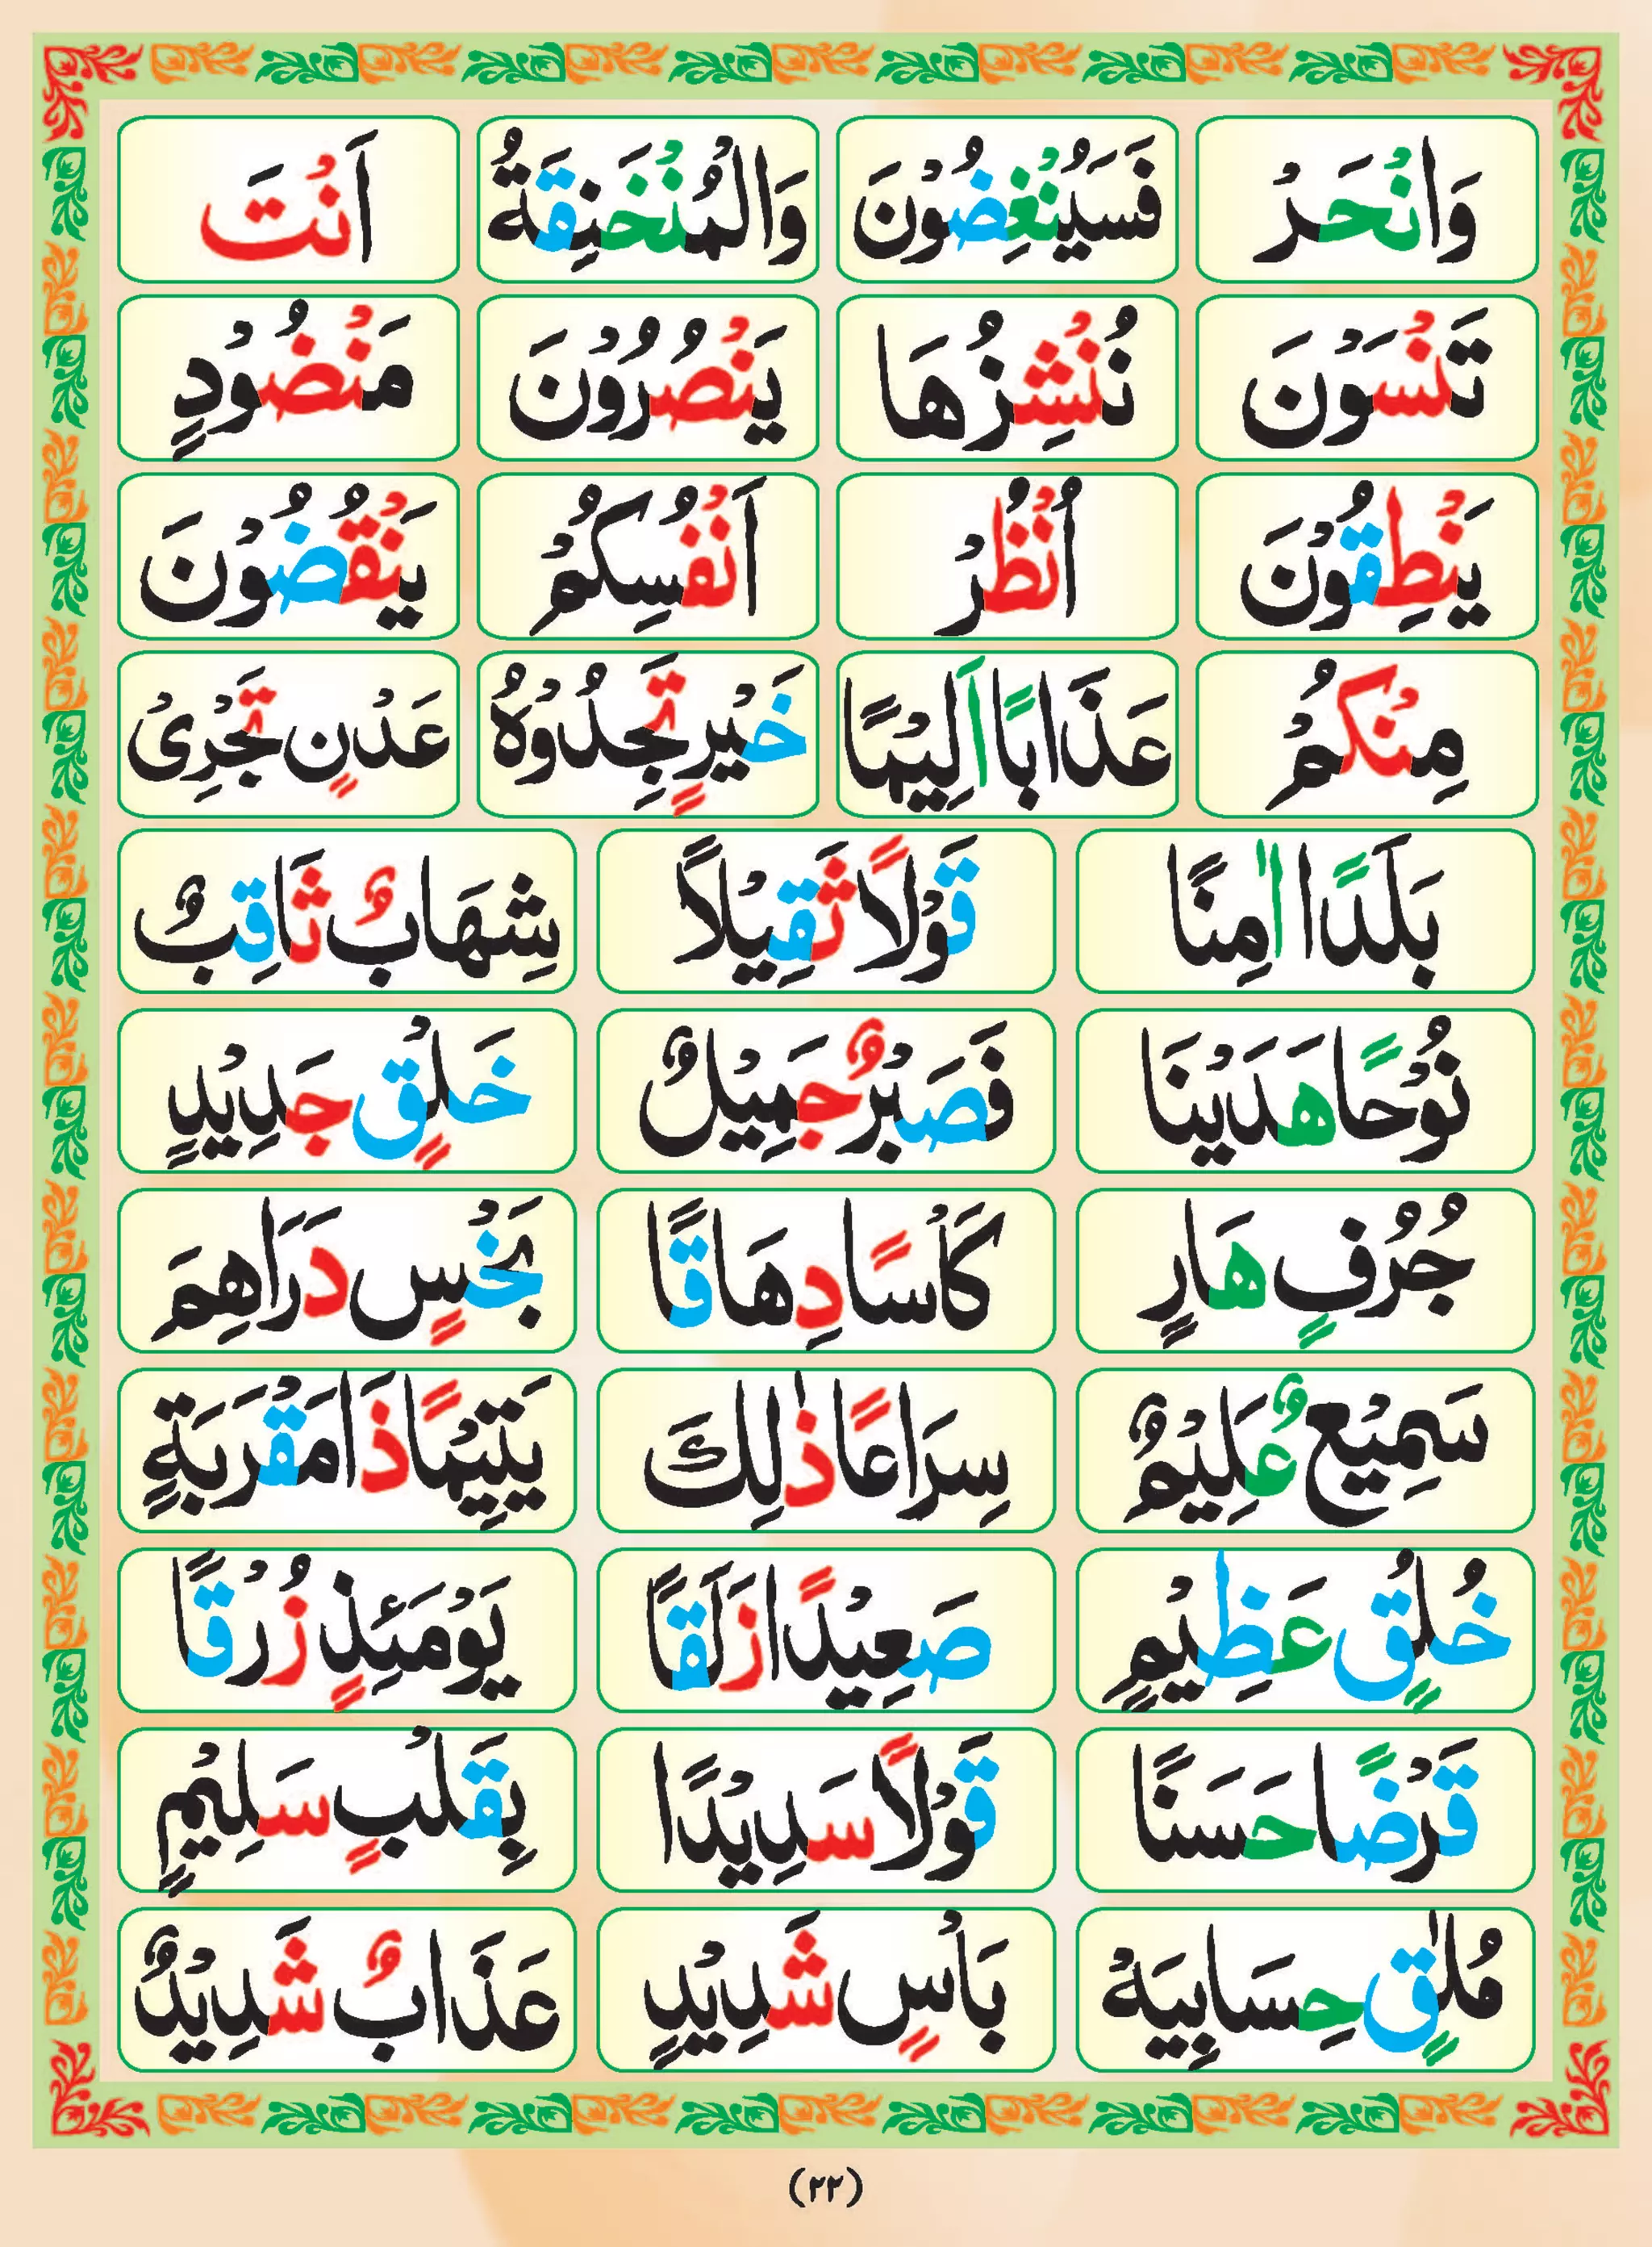 وَانْحَرْ فَسَيُنْغِضُوْنَ وَالْمُنْخَنِقَةُ اَنْتَ
تَنْسَوْنَ نُنْشِزُهَا يَنْصُرُوْنَ مَنْضُوْدٍ
يَنْطِقُوْنَ اُنْظُرْ اَنْفُسِكُمْ يَنْقُضُوْنَ
مِنْكُمْ عَذَابًا اَلِيْمًا خَيْرٍ تَجِدُوْهُ عَدْنٍ تَجْرِىْ
بَلَدًا اٰمِنًا قَوْلًا ثَقِيْلًا شِهَابٌ ثَاقِبٌ
نُوْحًا هَدَيْنَا فَصَبْرٌ جَمِيْلٌ خَلْقٍ جَدِيْدٍ
جُرُفٍ هَارٍ كَاْسًا دِهَاقًا بَخْسٍ دَرَاهِمَ
سَمِيْعٌ عَلِيْمٌ سِرَاعًا ذٰلِكَ يَتِيْمًا ذَا مَقْرَبَةٍ
خُلُقٍ عَظِيْمٍ صَعِيْدًا زَلَقًا يَوْمَئِذٍ زُرْقًا
قَرْضًا حَسَنًا قَوْلًا سَدِيْدًا بِقَلْبٍ سَلِيْمٍ
مُلٰقٍ حِسَابِيَهْ بَاْسٍ شَدِيْدٍ عَذَابٌ شَدِيْدٌ
(٢٢)